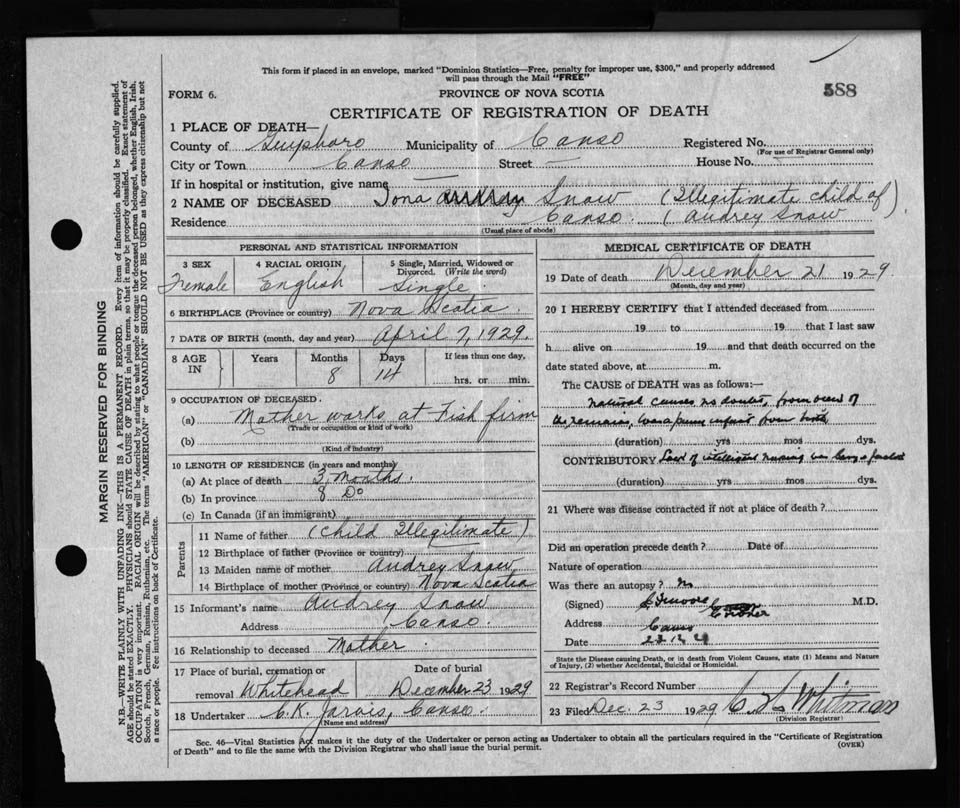 This form if placed in an envelope, marked "Dominion Statistics—Free, penalty for improper use, $300," and properly addressed
will pass through the Mail "FREE"
588
FORM 6.
PROVINCE OF NOVA SCOTIA
CERTIFICATE OF REGISTRATION OF DEATH
1 PLACE OF DEATH—
County of Guysboro Municipality of Canso Registered No.
(For use of Registrar General only)
City or Town Canso Street — House No.
If in hospital or institution, give name —
2 NAME OF DECEASED Iona Snow (Illegitimate child of
Residence Canso. (Audrey Snow)
(Usual place of abode)
PERSONAL AND STATISTICAL INFORMATION
3 SEX
Female
4 RACIAL ORIGIN
English
5 Single, Married, Widowed or
Divorced. (Write the word)
Single.
6 BIRTHPLACE (Province or country) Nova Scotia.
7 DATE OF BIRTH (month, day and year) April 7, 1929.
8 AGE IN
Years
Months
8
Days
14
If less than one day,
hrs. or min.
9 OCCUPATION OF DECEASED.
(a) Mother works at Fish firm
(Trade or occupation or kind of work)
(b)
(Kind of industry)
10 LENGTH OF RESIDENCE (in years and months)
(a) At place of death 3 months.
(b) In province 8 Do
(c) In Canada (if an immigrant)
Parents
11 Name of father (Child Illegitimate)
12 Birthplace of father (Province or country)
13 Maiden name of mother Audrey Snow
14 Birthplace of mother (Province or country) Nova Scotia
15 Informant's name Audrey Snow
Address Canso.
16 Relationship to deceased Mother.
17 Place of burial, cremation or
removal Whitehead
Date of burial
December 23 1929
18 Undertaker C.K. Jarvis, Canso.
(Name and address)
MEDICAL CERTIFICATE OF DEATH
19 Date of death December 21 1929.
(Month, day and year)
20 I HEREBY CERTIFY that I attended deceased from
19 to 19 that I last saw
h alive on 19 and that death occurred on the
date stated above, at m.
The CAUSE of DEATH was as follows:—
Natural causes no doubt, from view of
the remains, was a puny infant from birth
(duration) yrs mos dys.
CONTRIBUTORY Lack of intelligent nursing was large a factor
(duration) yrs mos dys.
21 Where was disease contracted if not at place of death?
Did an operation precede death? Date of
Nature of operation
Was there an autopsy? No
(Signed) M.D.
Address Canso
Date
State the Disease causing Death, or in death from Violent Causes, state (1) Means and Nature
of Injury, (2) whether Accidental, Suicidal or Homicidal.
22 Registrar's Record Number
23 Filed Dec. 23 1929 Whitman
(Division Registrar)
Sec. 46—Vital Statistics Act makes it the duty of the Undertaker or person acting as Undertaker to obtain all the particulars required in the "Certificate of Registration
of Death" and to file the same with the Division Registrar who shall issue the burial permit.
(OVER)
MARGIN RESERVED FOR BINDING
N.B.—WRITE PLAINLY WITH UNFADING INK—THIS IS A PERMANENT RECORD. Every item of information should be carefully supplied.
AGE should be stated EXACTLY. PHYSICIANS should STATE CAUSE OF DEATH in plain terms, so that it may be properly classified. Exact statement of
OCCUPATION is very important. RACIAL ORIGIN will be described by stating to what people or tongue the deceased person belonged, whether English, Irish,
Scotch, French, German, Russian, Ruthenian, etc. The terms "AMERICAN" or "CANADIAN" SHOULD NOT BE USED as they express citizenship but not
a race or people. Fee instructions on back of Certificate.